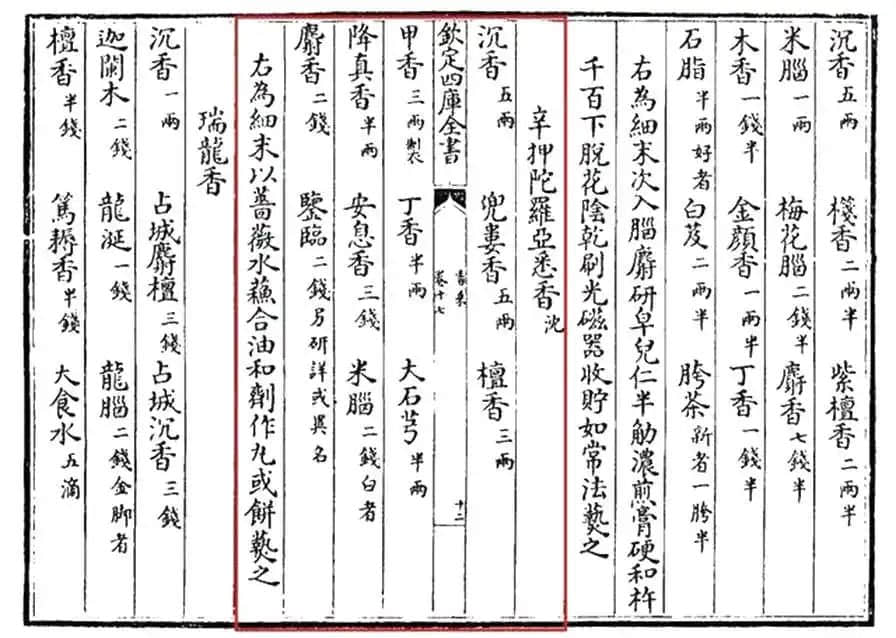 沉香五兩 棧香二兩半 紫檀香二兩半
米腦一兩 梅花腦二錢半 麝香七錢半
木香一錢半 金顏香一兩半 丁香一錢半
石脂半兩好者 白芨二兩半 胯茶新者一胯半
右為細末次入腦麝研皁兒仁半觔濃煎膏硬和杵
千百下脫花陰乾刷光磁器收貯如常法爇之
辛押陀羅亞悉香沈
沉香五兩 兜婁香五兩 檀香三兩
欽定四庫全書 香乘 卷十七 十二
甲香三兩製 丁香半兩 大石芎半兩
降真香半兩 安息香三錢 米腦二錢白者
麝香二錢 鑒臨二錢另研詳或異名
右為細末以薔薇水蘓合油和劑作丸或餅爇之
瑞龍香
沉香一兩 占城麝檀三錢 占城沉香三錢
迦闌木二錢 龍涎一錢 龍腦二錢金脚者
檀香半錢 篤耨香半錢 大食水五滴